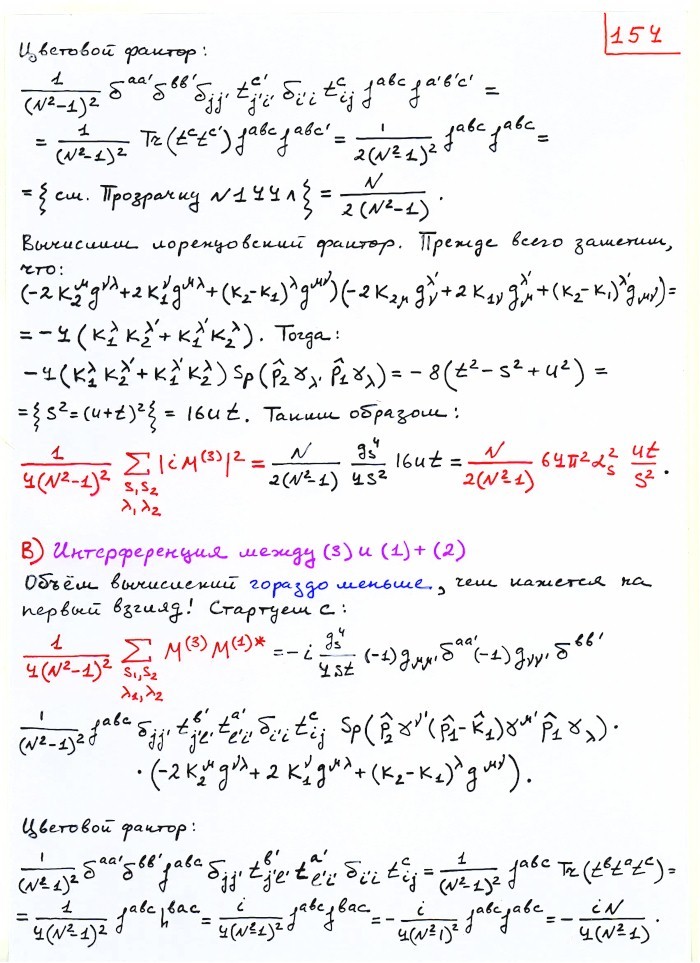 154
Цветовой фактор:
1/(N²-1)² δ^{aa'} δ^{bb'} δ_{jj'} t^{c'}_{j'i'} δ_{i'i} t^{c}_{ij} f^{abc} f^{a'b'c'} =
= 1/(N²-1)² Tr(t^c t^{c'}) f^{abc} f^{abc'} = 1/2(N²-1)² f^{abc} f^{abc} =
= {см. Прозрачку N144л} = N/2(N²-1) .
Вычислим лоренцовский фактор. Прежде всего заметим,
что:
(-2K_2^μ g^{νλ} + 2K_1^ν g^{μλ} + (K_2-K_1)^λ g^{μν})(-2K_{2μ} g_ν^{λ'} + 2K_{1ν} g_μ^{λ'} + (K_2-K_1)^{λ'} g_{μν}) =
= -4(K_1^λ K_2^{λ'} + K_1^{λ'} K_2^λ). Тогда:
-4(K_1^λ K_2^{λ'} + K_1^{λ'} K_2^λ) Sp(p̂_2 γ_{λ'} p̂_1 γ_λ) = -8(t²-s²+u²) =
= {s²=(u+t)²} = 16ut. Таким образом:
1/4(N²-1)² Σ_{s_1,s_2 λ_1,λ_2} |iM^{(3)}|² = N/2(N²-1) g_s^4/4s² 16ut = N/2(N²-1) 64π²α_s² ut/s² .
В) Интерференция между (3) и (1)+(2)
Объём вычислений гораздо меньше, чем кажется на
первый взгляд! Стартуем с:
1/4(N²-1)² Σ_{s_1,s_2 λ_1,λ_2} M^{(3)} M^{(1)*} = -i g_s^4/4st (-1)g_{μμ'} δ^{aa'} (-1)g_{νν'} δ^{bb'}
1/(N²-1)² f^{abc} δ_{jj'} t^{b'}_{j'e'} t^{a'}_{e'i'} δ_{i'i} t^c_{ij} Sp(p̂_2 γ^{ν'} (p̂_1-K̂_1) γ^{μ'} p̂_1 γ_λ) ·
· (-2K_2^μ g^{νλ} + 2K_1^ν g^{μλ} + (K_2-K_1)^λ g^{μν}).
Цветовой фактор:
1/(N²-1)² δ^{aa'} δ^{bb'} f^{abc} δ_{jj'} t^{b'}_{j'e'} t^{a'}_{e'i'} δ_{i'i} t^c_{ij} = 1/(N²-1)² f^{abc} Tr(t^b t^a t^c) =
= 1/4(N²-1)² f^{abc} h^{bac} = i/4(N²-1)² f^{abc} f^{bac} = - i/4(N²-1)² f^{abc} f^{abc} = - iN/4(N²-1) .